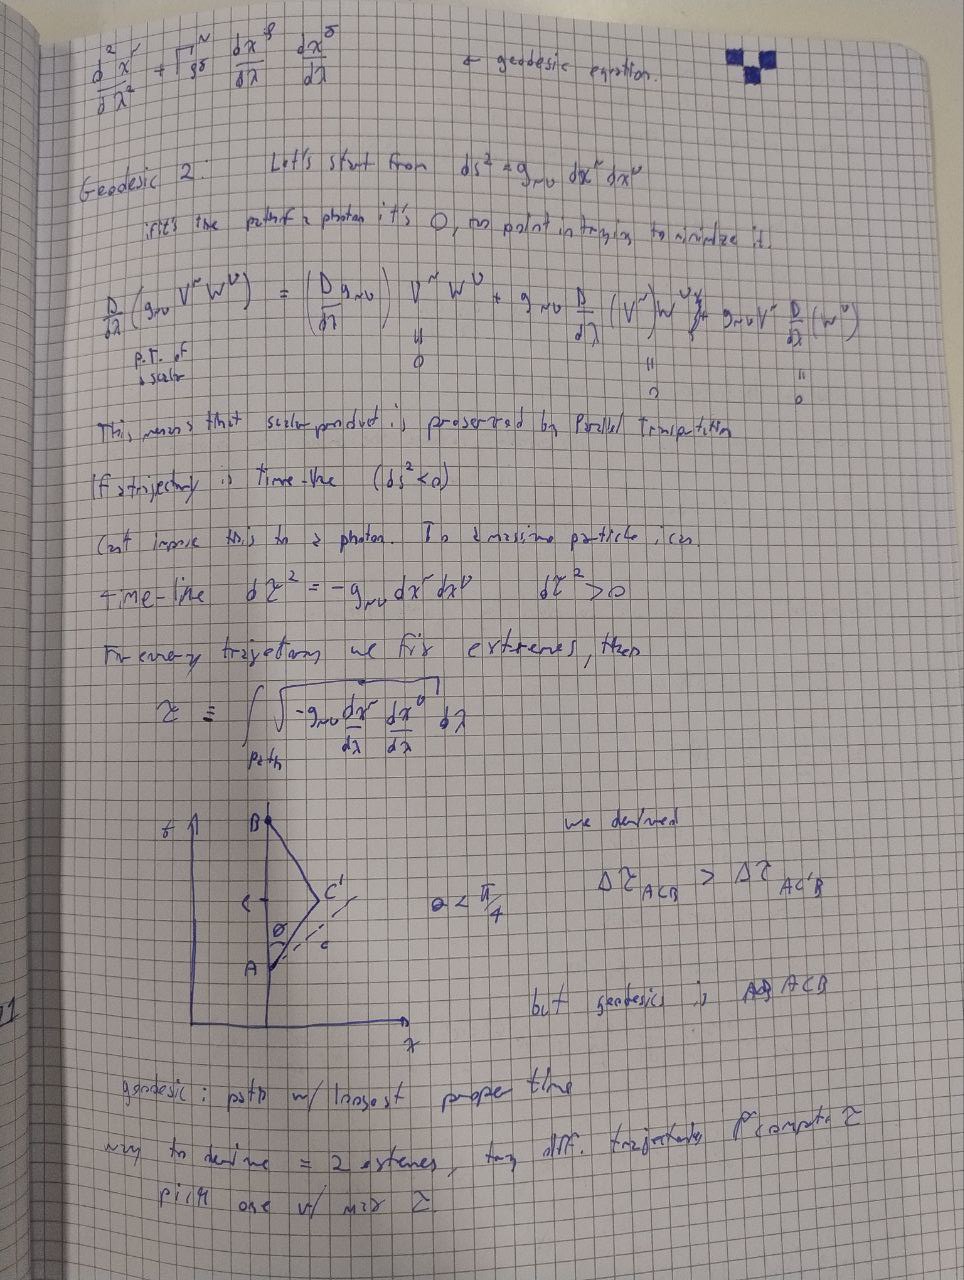 d²x^μ/dλ² + Γ^μ_ρσ dx^ρ/dλ dx^σ/dλ ← geodesic equation.
Geodesic 2: Let's start from ds² = g_μν dx^μ dx^ν
if it's the path of a photon it's 0, no point in trying to minimize it.
D/dλ (g_μν V^μ W^ν) = (D/dλ g_μν) V^μ W^ν + g_μν D/dλ (V^μ) W^ν + g_μν V^μ D/dλ (W^ν)
P.T. of = 0 = 0 = 0
a scalar
This means that scalar product is preserved by Parallel
If a trajectory is time-like (ds² < 0)
Can't impose this to a photon. To a massive particle i can.
time-like dτ² = -g_μν dx^μ dx^ν dτ² > 0
For every trajectory we fix extremes, then
τ ≡ ∫ √(-g_μν dx^μ/dλ dx^ν/dλ) dλ
path
t B we derived
C C' θ < π/4 Δτ_ACB > Δτ_AC'B
θ c
A
but geodesics is ACB
x
11
geodesic: path w/ longest proper time
way to define = 2 extremes, try diff. trajectories compute τ
pick one w/ max τ